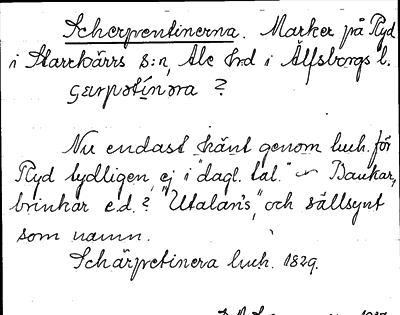 Scherpentinerna. Marker på Ryd
i Starrkärrs s:n, Ale hrd i Älfsborgs l.
ꞔærpətínəra ?
Nu endast känt genom luch. för
Ryd tydligen, ej i "dagl. tal." ~ Backar,
brinkar e.d.? "Utalan's", och sällsynt
som namn.
Schärpetinera luch. 1829.